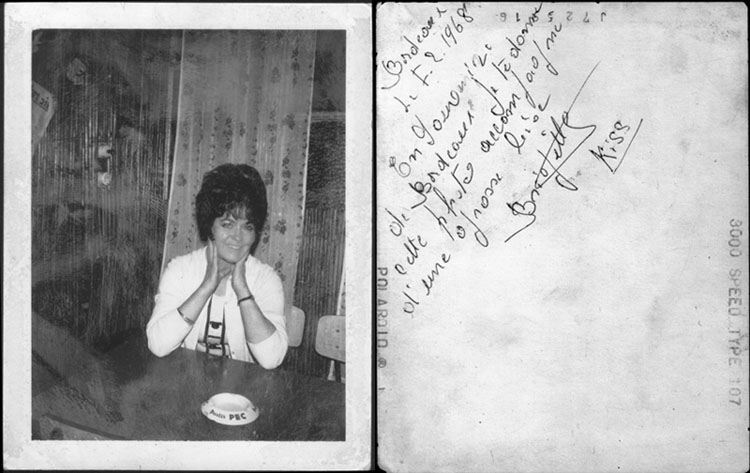 Bordeaux
Le 7.2.1968
En souvenir
de Bordeaux je te donne
cette photo accompagne
d'une grosse bise
Brigitte
Kiss
POLAROID ®
3000 SPEED TYPE 107
PEC